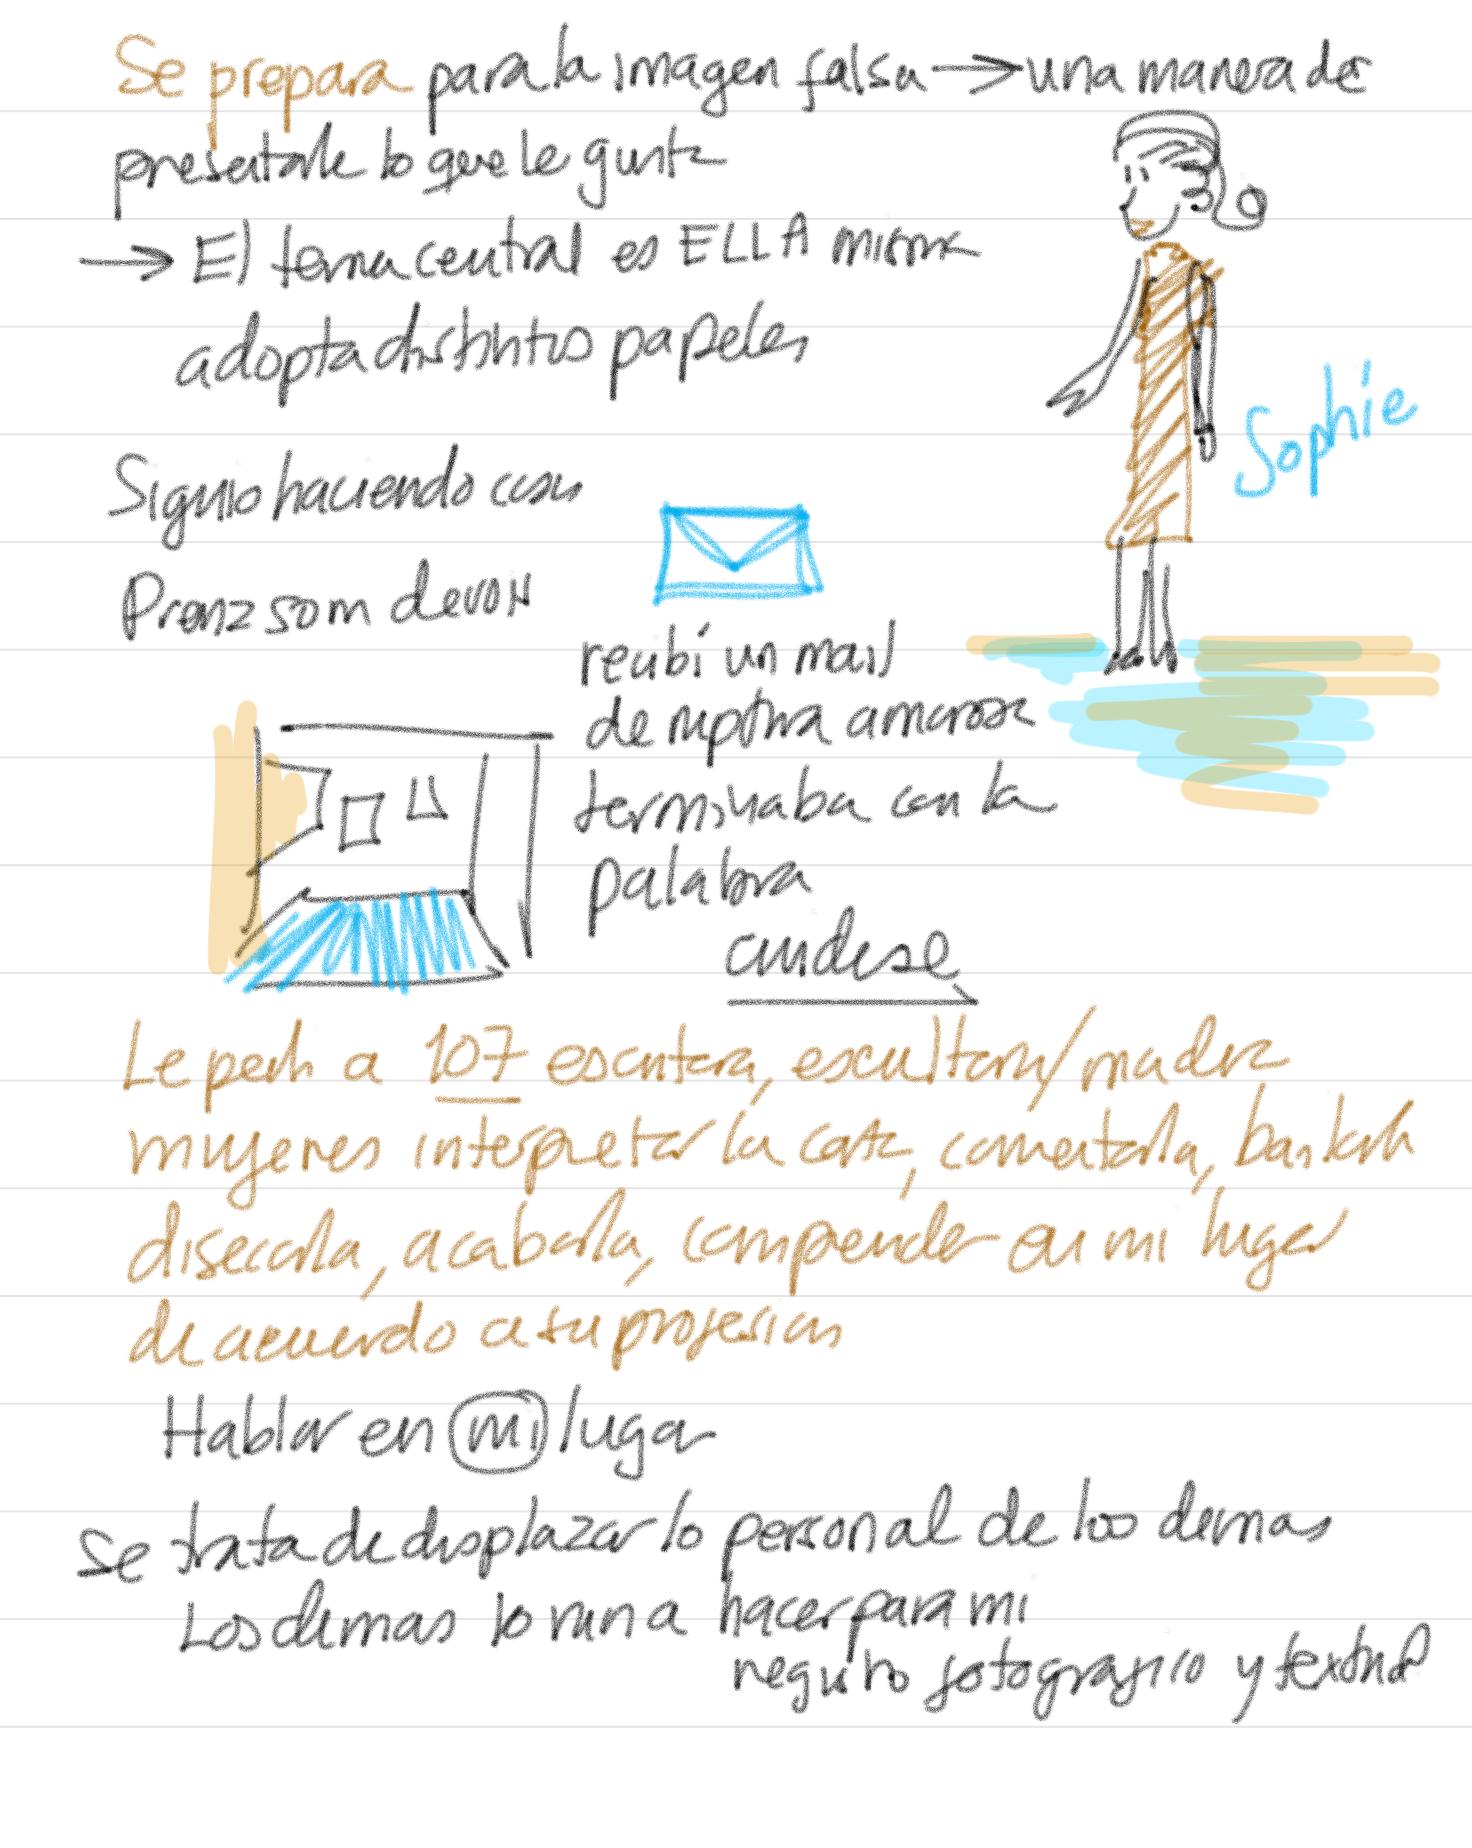 Se prepara para la imagen falsa → una manera de
presentarle lo que le gusta
→ El tema central es ELLA misma
adopta distintos papeles
Sophie
Siguio haciendo cosas
recibí un mail
de ruptura amorosa
terminaba con la
palabra
cuidese
Le pedi a 107 escritora, escultora/
mujeres interpretar la carta, comentarla, bailarla
disecarla, acabarla, comprender en mi lugar
de acuerdo a su
Hablar en mi lugar
Se trata de desplazar lo personal de los demas
Los demas lo van a hacer para mi
registro fotografico y textual